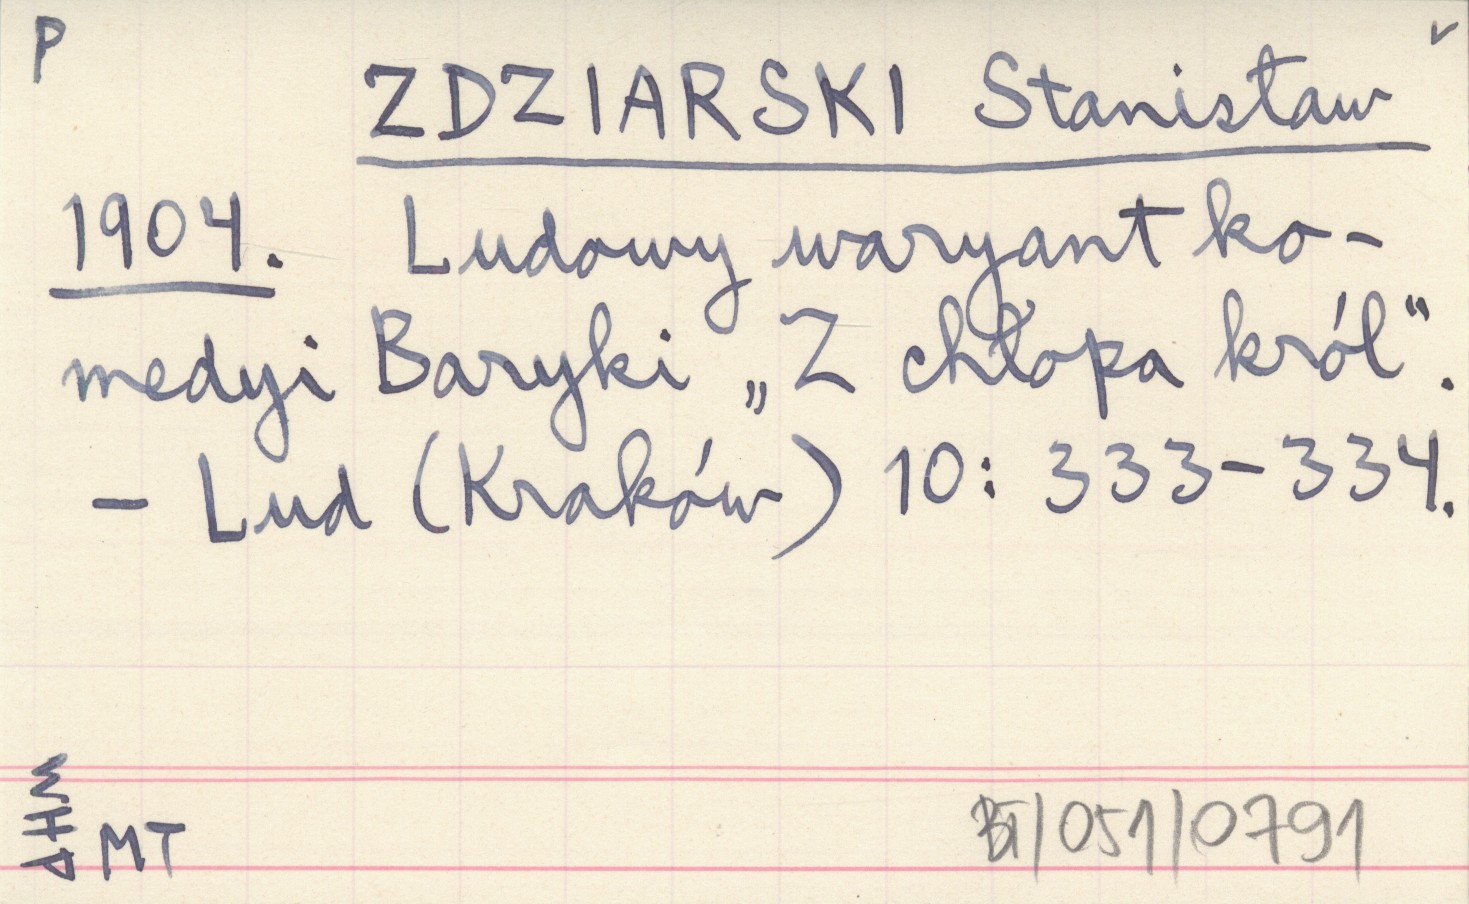 P
ZDZIARSKI Stanisław
1904. Ludowy waryant ko-
medyi Baryki „Z chłopa król“.
– Lud (Kraków) 10: 333–334.
MT
/051/0791